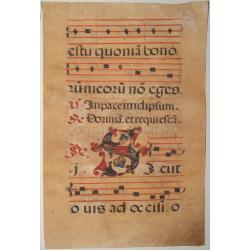 es tu quoniā bono
rū meorū nō eges.
V. In pace in idipsum.
R. Dormiā et requiescā.
R. S
j. I cut
o uis ad oc cisi o